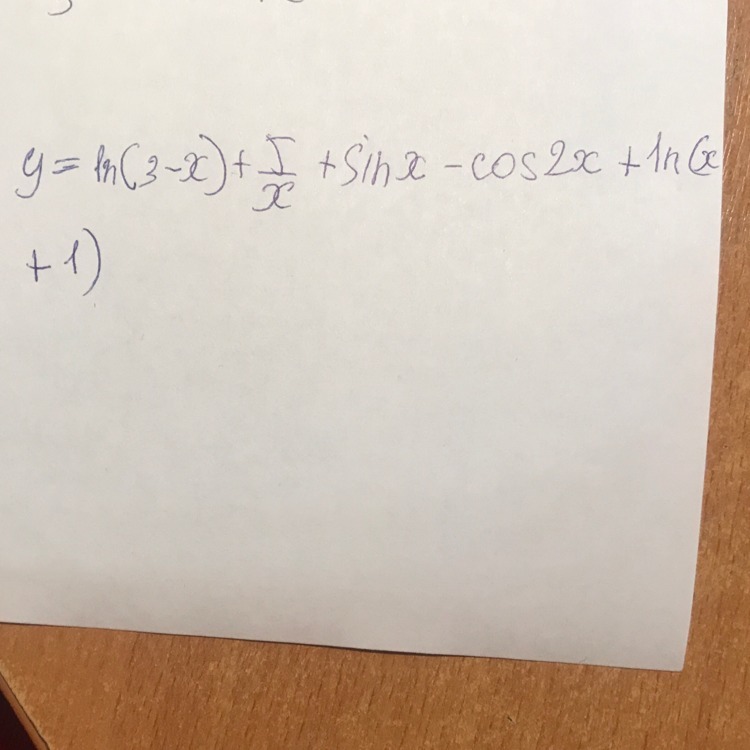 y = ln(3-x) + 5/x + sin x - cos2x + ln(x
+ 1)